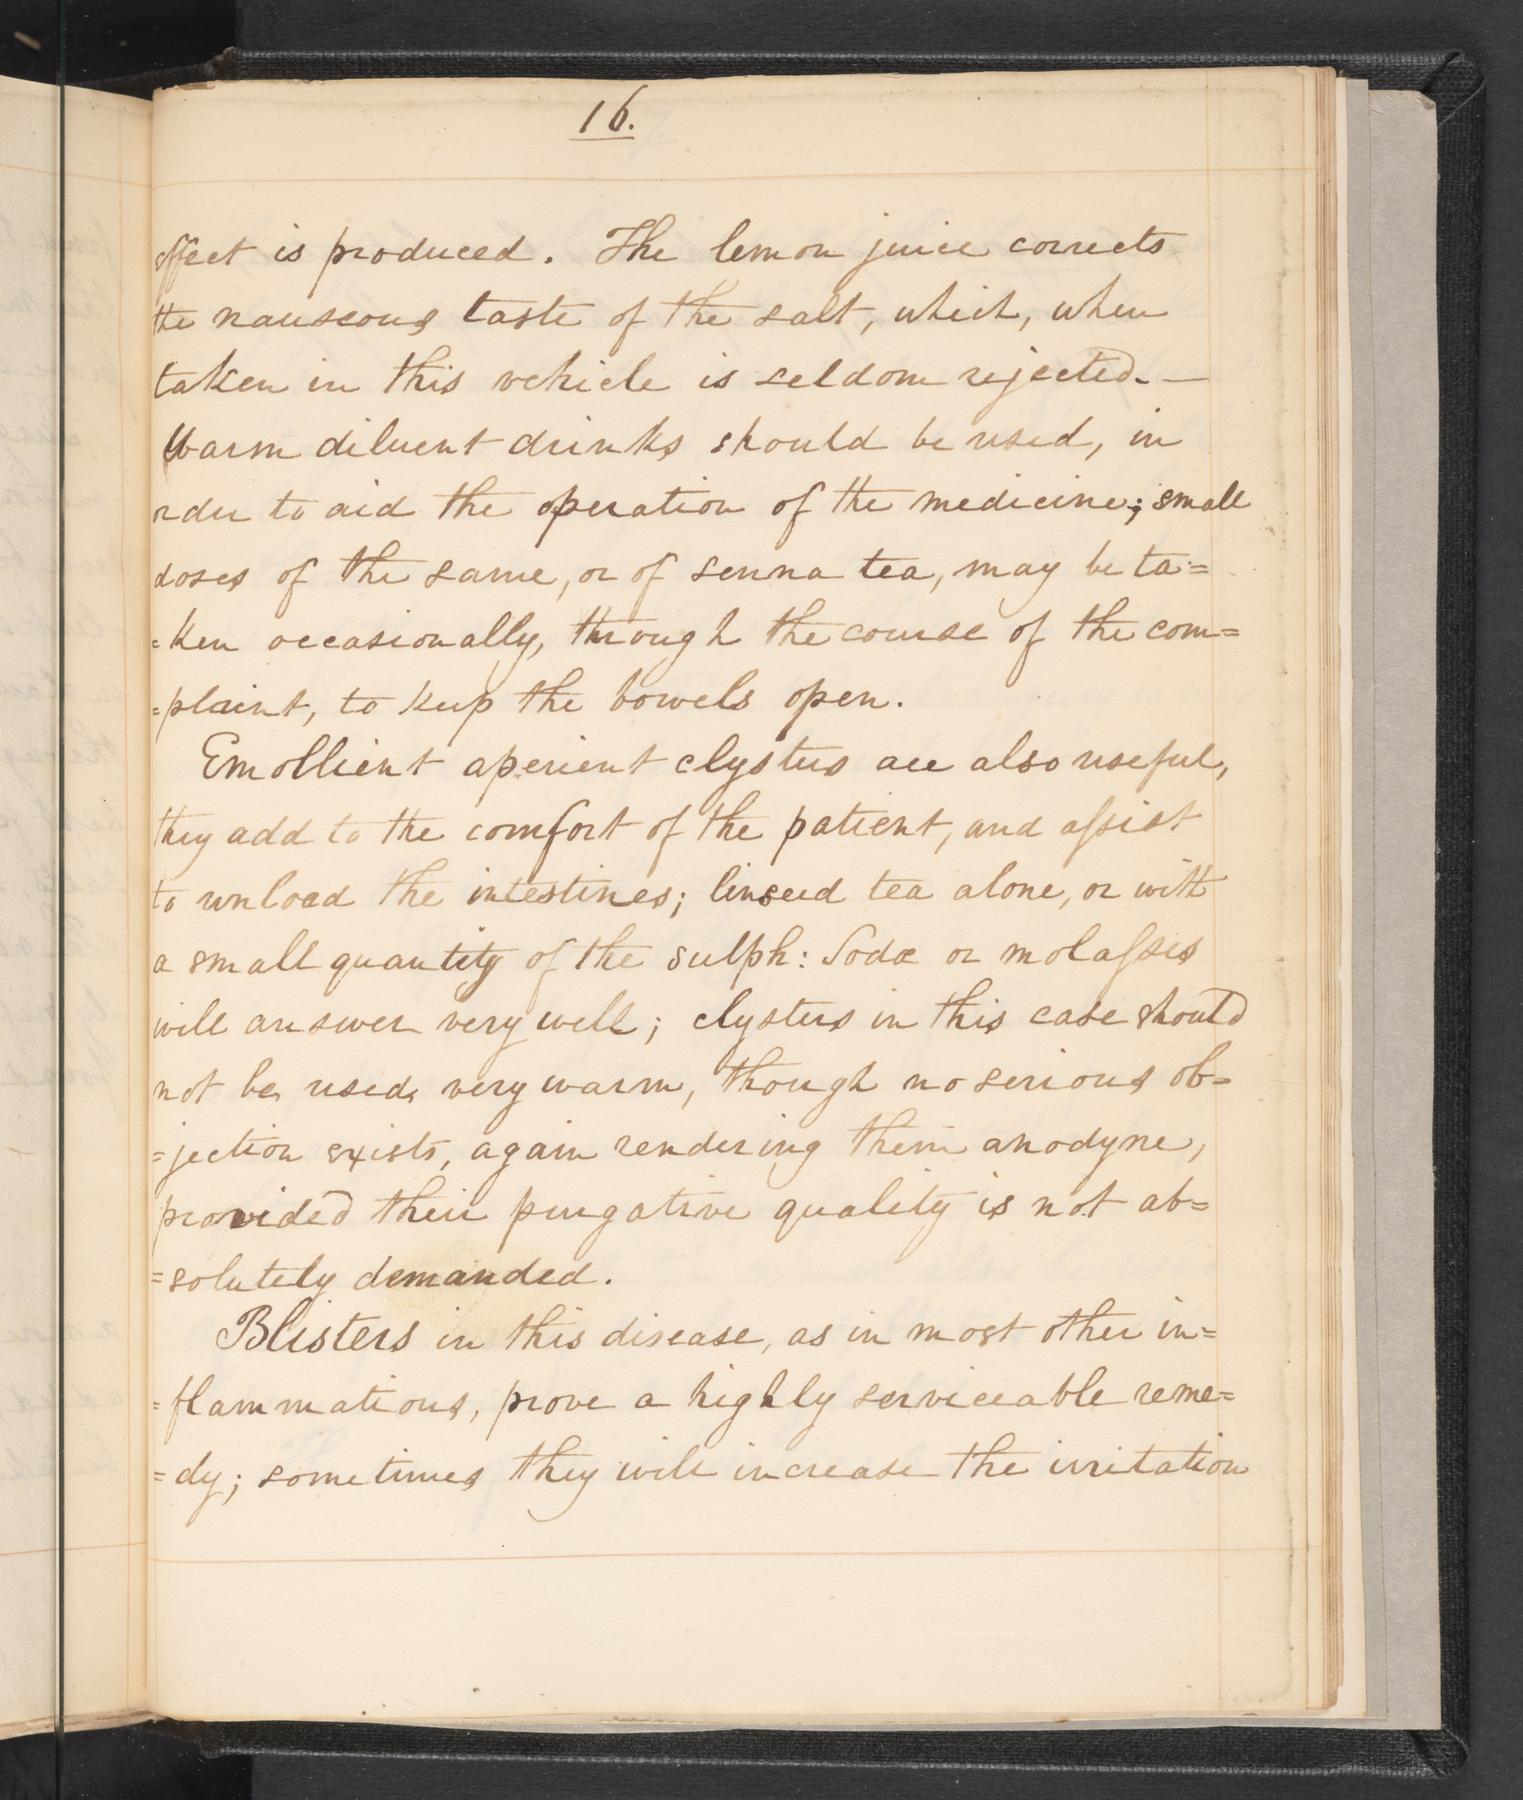 16.
effect is produced. The lemon juice corrects
the nauseous taste of the salt, which, when
taken in this vehicle is seldom rejected. —
Warm diluent drinks should be used, in
order to aid the operation of the medicine; small
doses of the same, or of senna tea, may be ta=
=ken occasionally, through the course of the com=
=plaint, to keep the bowels open.
Emollient aperient clysters are also useful,
they add to the comfort of the patient, and assist
to unload the intestines; linseed tea alone, or with
a small quantity of the sulph: Sodæ or molasses
will answer very well; clysters in this case should
not be used very warm, though no serious ob=
=jection exists, again rendering them anodyne,
provided their purgative quality is not ab=
=solutely demanded.
Blisters in this disease, as in most other in=
=flammations, prove a highly serviceable reme=
=dy; sometimes they will increase the irritation